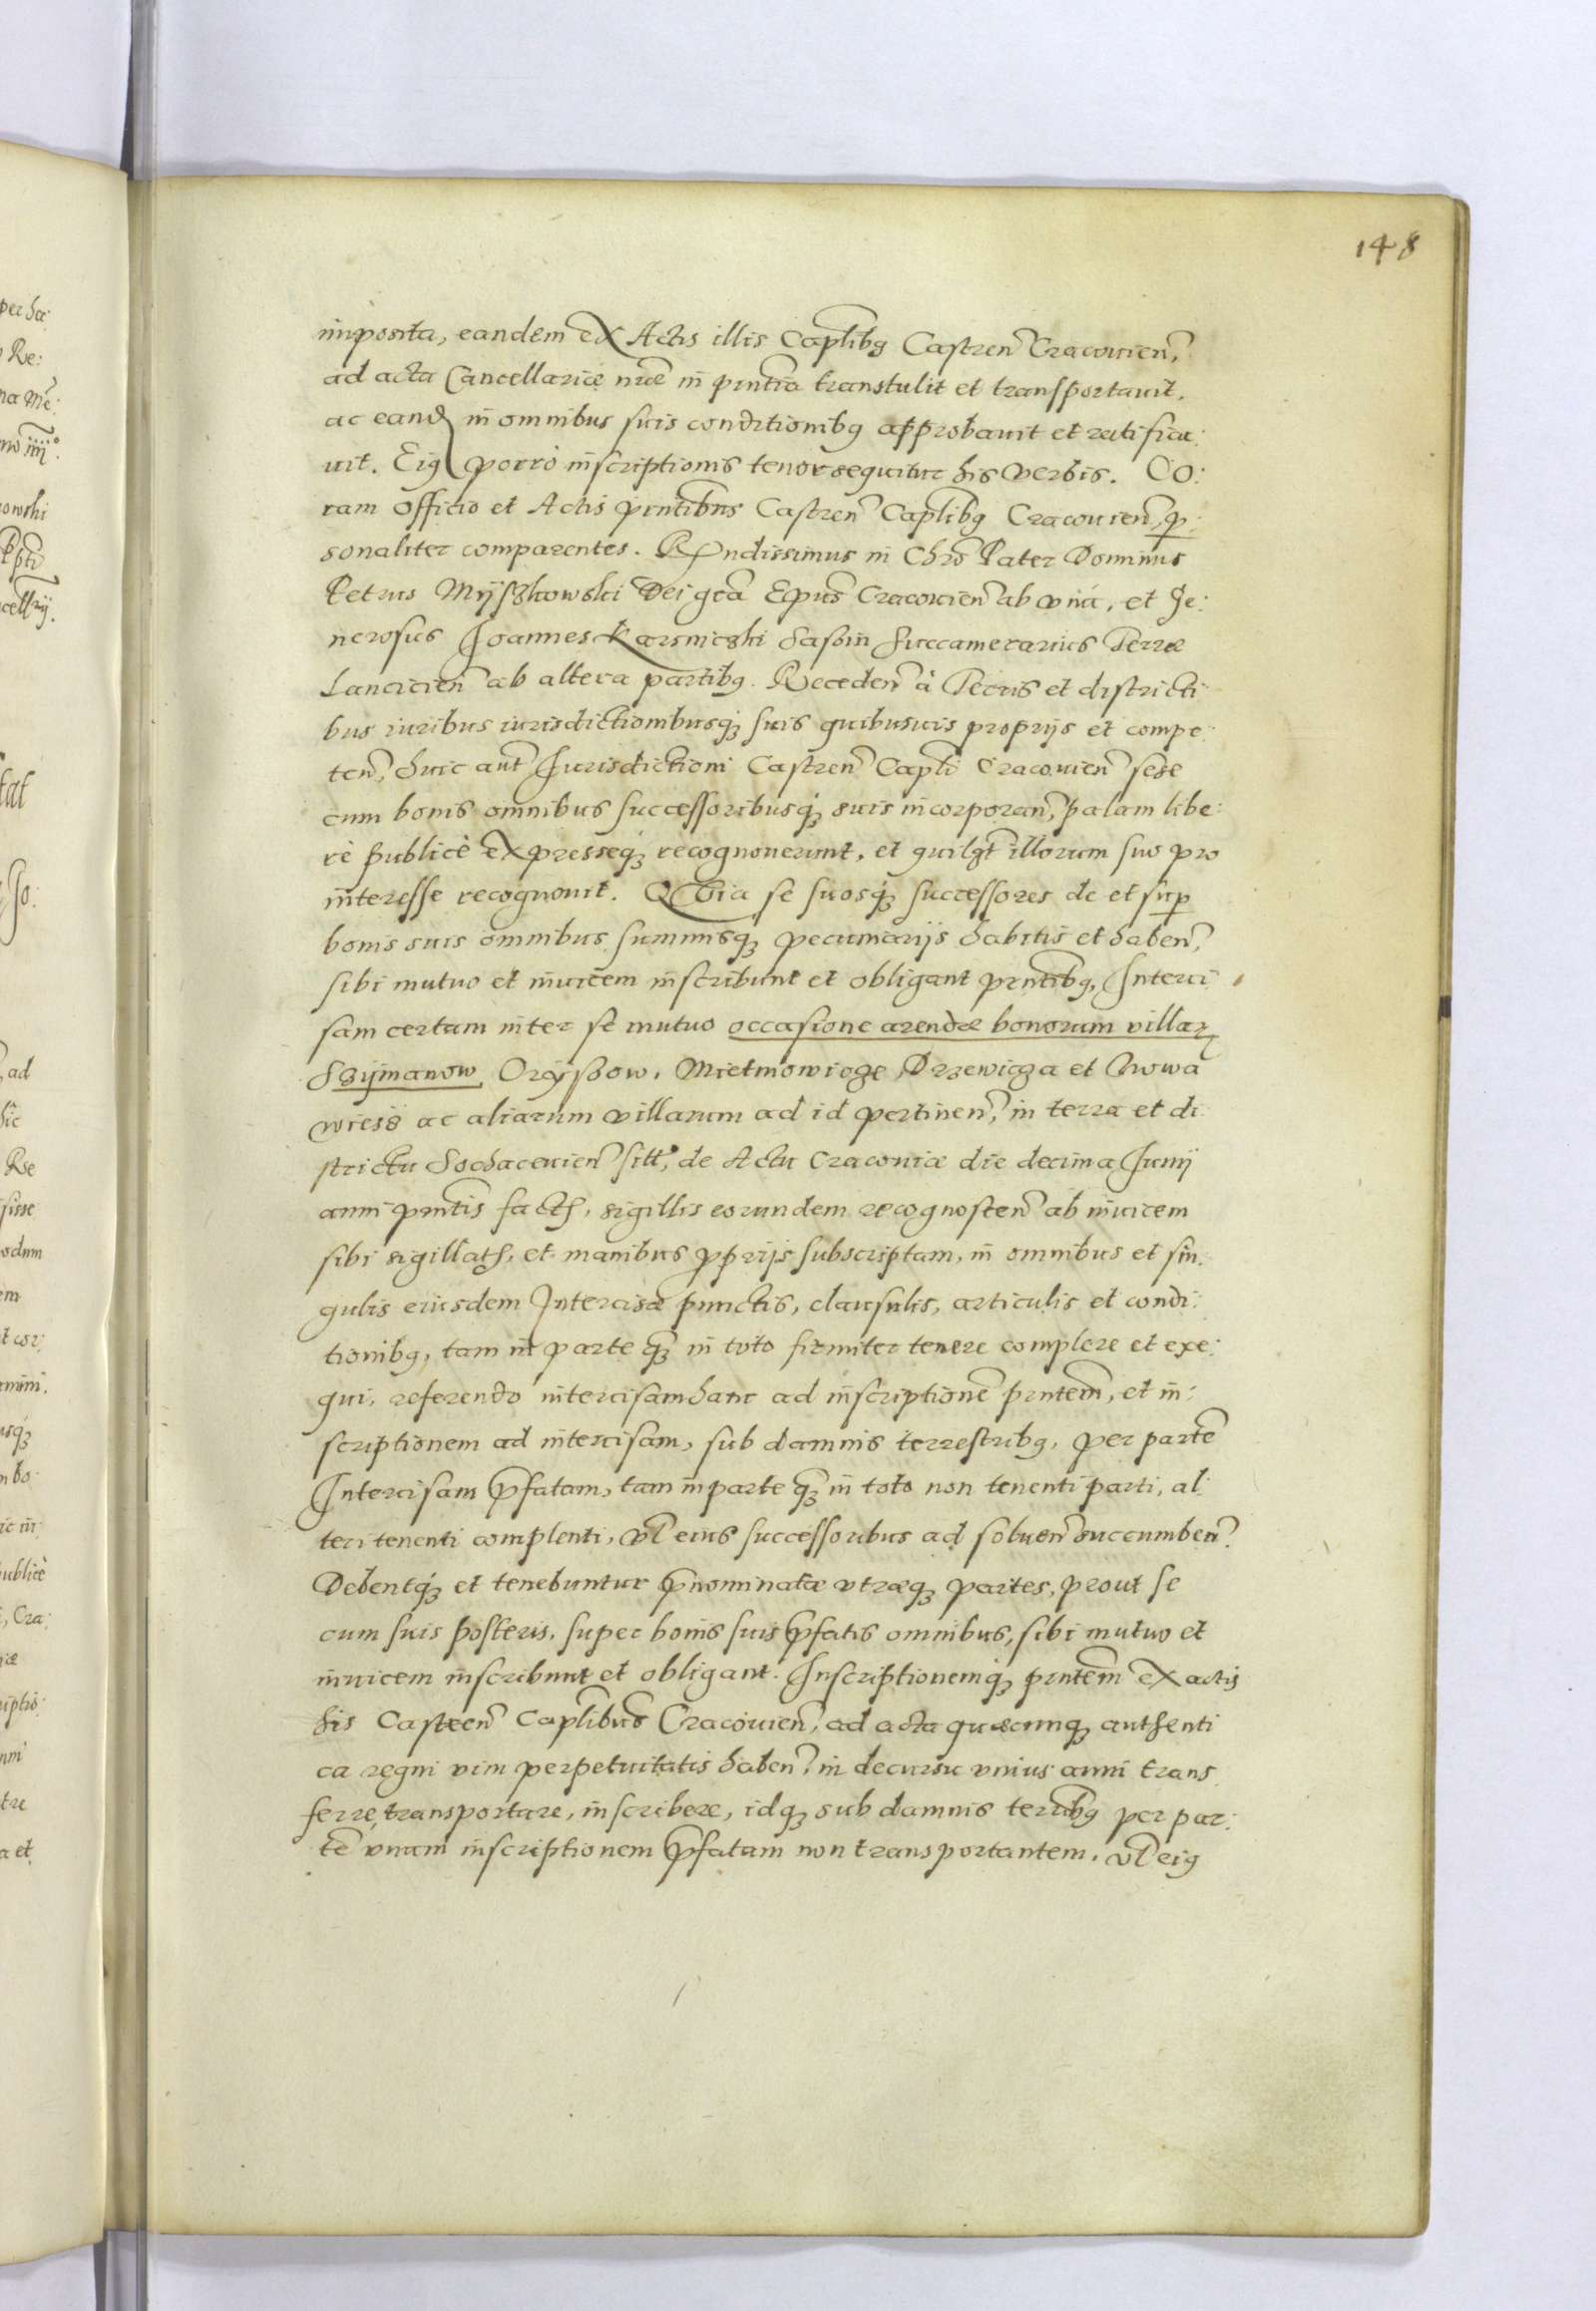 148
imposita, eandem ex Actis illis Caplibꝰ Castren̄ Cracouien̄,
ad acta Cancellariæ nr̄æ in pn̄tia transtulit et transportauit,
ac eand in omnibus suis conditionibꝰ approbauit et ratifica:
uit. Eiꝰ porrò inscriptionis tenor sequitur his verbis. CO:
ram Officio et Actis pn̄tibus Castren̄ Caplibꝰ Cracouien̄ ꝑ:
sonaliter comparentes. Rn̄dissimus in Chrō Pater Dominus
Petrus Myszkowski Dei gr̄a Ep̄us Cracouien̄ ab vná, et Ge:
nerosus Joannes Karsniczki Sasoin Succamerarius Terræ
Lancicien̄ ab altera partibꝰ. Receden̄ à Terris et districti
bus iuribus iurisdictionibusq́ꝫ suis quibusuis proprijs et compe:
ten̄, huic aūt Jurisdictioni Castren̄ Capli Cracouien̄ sese
cum bonis omnibus successoribusq́ꝫ suis incorporan̄, palam libe:
rè publicè expresseq́ꝫ recognouerunt, et quilꝫt illorum suo pro
interesse recognouit. QVia se suosq́ꝫ successores de et suꝑ
bonis suis omnibus summisqꝫ pecuniarijs habitis et haben̄,
sibi mutuo et inuicem inscribunt et obligant pn̄tibꝰ, Interci
sam certam inter se mutuo occasione arendæ bonorum villaꝝ
Szymanow, Oryszow, Mietniowioge, Drzewicza et Nowa
wiesz ac aliarum villarum ad id pertinen̄, in terra et di
strictu Sochaceuien̄ sitt, de Actu Cracouiæ die decima Junij
anni pn̄tis fact, sigillis eorundem recognoscen̄ ab inuicem
sibi sigillat, et manibus ꝓprijs subscriptam, in omnibus et sin.
gulis eiusdem Intercisæ punctis, clausulis, articulis et condi:
tionibꝰ, tam in parte qꝫ in toto firmiter tenere complere et exe:
qui, referendo intercisam hanc ad inscriptionē pn̄tem, et in:
scriptionem ad intercisam, sub damnis terrestribꝰ, per partē
Intercisam p̄fatam, tam in parte qꝫ in toto non tenenti parti, al
teri tenenti complenti, vl eius successoribus ad soluen̄ succumben̄.
Debentq́ꝫ et tenebuntur p̄nominatæ vtræqꝫ partes, prout se
cum suis posteris, super bonis suis p̄fatis omnibus, sibi mutuo et
inuicem inscribunt et obligant. Inscriptionemq́ꝫ pn̄tem ex actis
his Castren̄ Caplibus Cracouien̄, ad acta quæcunqꝫ authenti
ca regni vim perpetuitatis haben̄, in decursu vnius anni trans
ferre, transportare, inscribere, idqꝫ sub damnis terribꝰ per par:
tē vnam inscriptionem p̄fatam non transportantem, vl eiꝰ